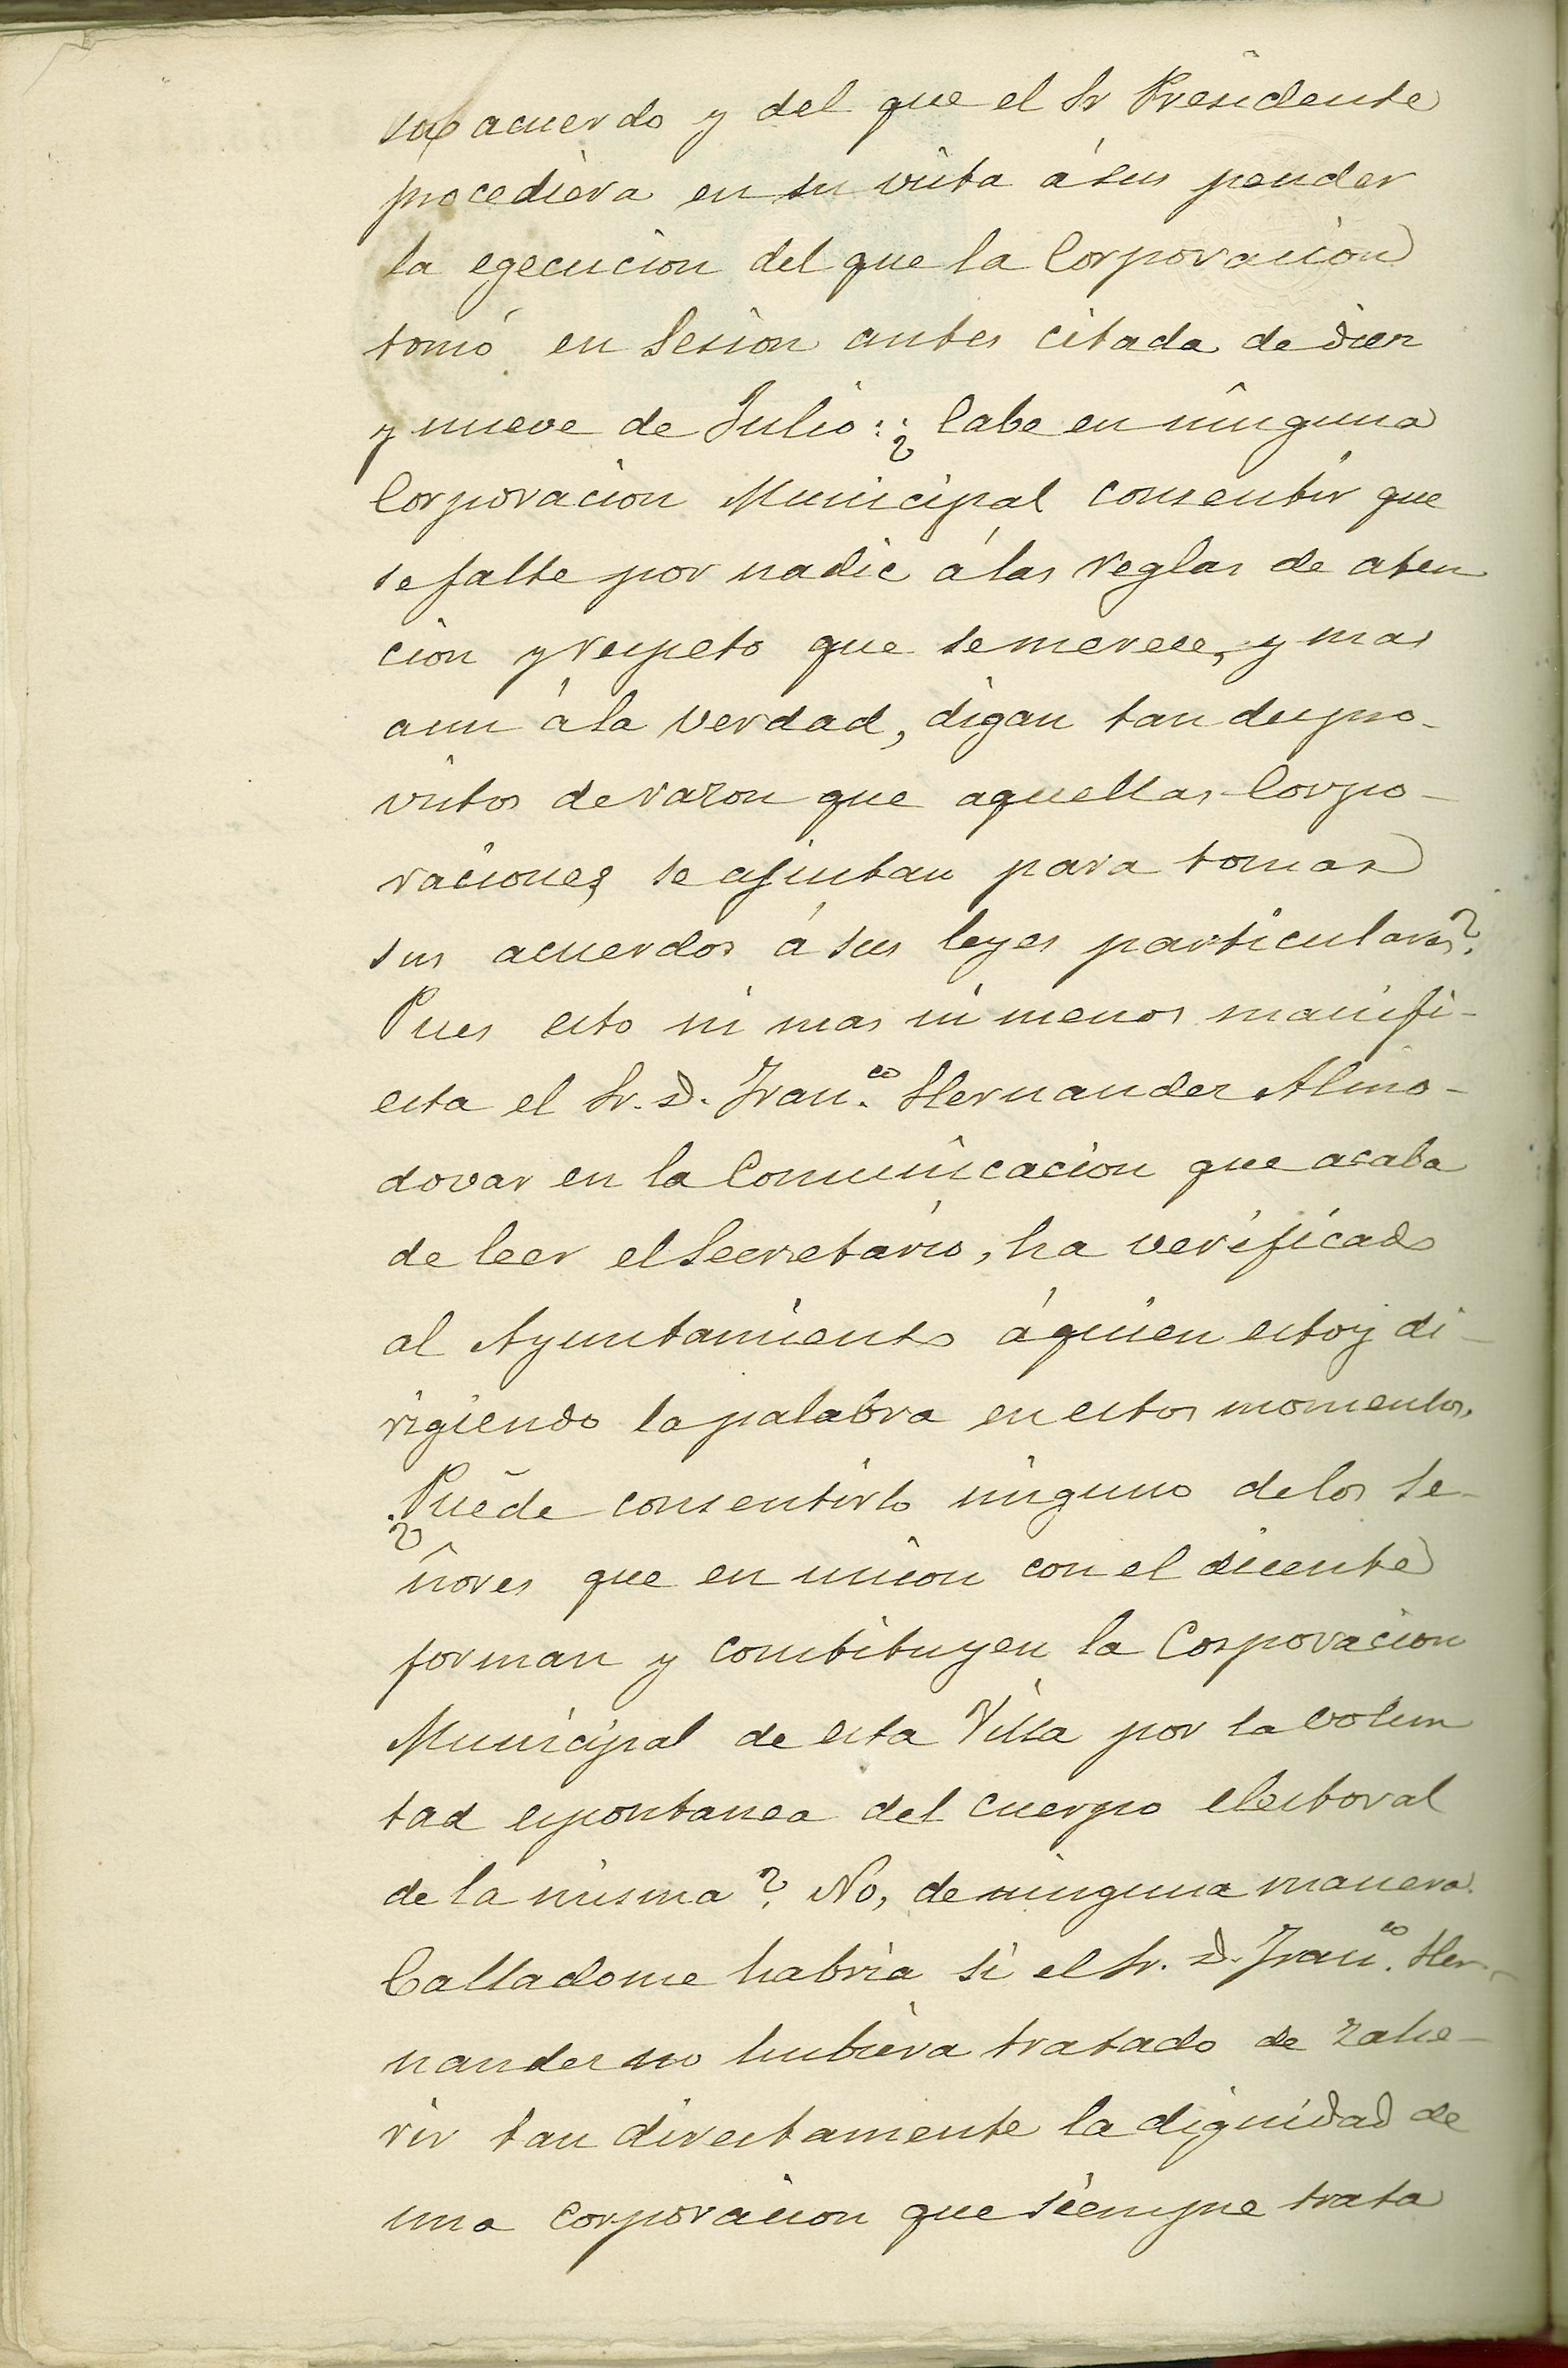 acuerdo y del que el Sr Presidente
procediera en su vista á sus pender
la egecucion del que la Corporacion
tomó en Sesion antes citada de diez
y nueve de Julio: ¿Cabe en ninguna
Corporacion Municipal consentir que
se falte por nadie á las reglas de aten
cion y respeto que se merece, y mas
aun á la verdad, digan tan despro-
vistos de razon que aquellas Corpo-
raciones se ajustan para tomar
sus acuerdos á sus leyes particulares?
Pues esto ni mas ni menos manifi-
esta el Sr. D. Fran.co Hernandez Almo-
dovar en la Comunicacion que acaba
de leer el Secretario, ha verificado
al Ayuntamiento á quien estoy di-
rigiendo la palabra en estos momentos.
¿Puede consentirlo ninguno de los se-
ñores que en union con el dicente
forman y constituyen la Corporacion
Municipal de esta Villa por la volun
tad espontanea del cuerpo electoral
de la misma? No, de ninguna manera.
Calladome habria si el Sr. D. Fran.co Her-
nandez no hubiera tratado de zahe-
rir tan directamente la dignidad de
una corporacion que siempre trata